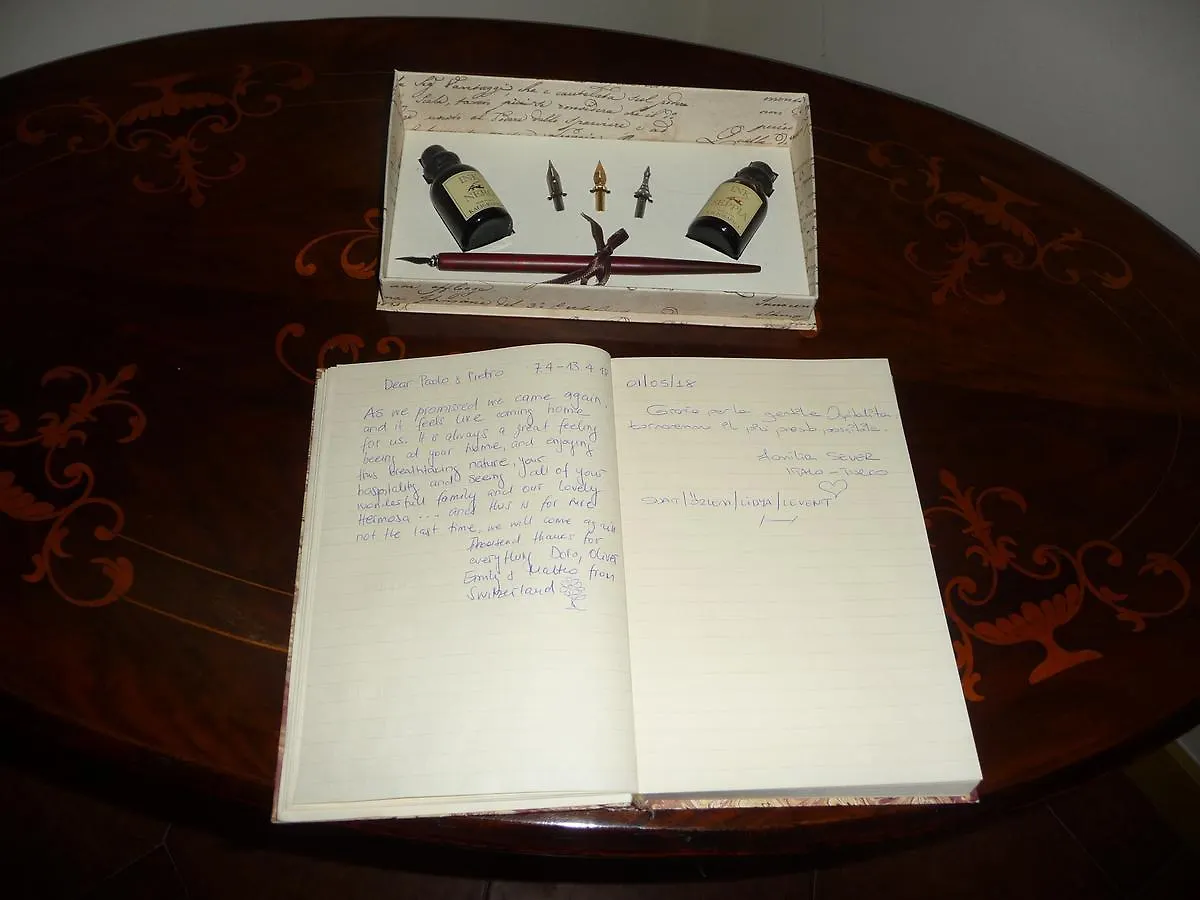 INK
NERO
INK
SEPPIA
Dear Paolo & Pietro 7.4 - 13.4.18
As we promissed we came again.
and it feels like coming home
for us. It is always a great feeling
beeing at your home, and enjoying
this breathtaking nature, your
hospitality and seeing all of your
wonderfull family and our lovely
Hermosa ... and this is for sure
not the last time, we will come again
Thousend thanks for
everything Doro, Oliver
Emily & Matteo from
Switzerland
01/05/18
Grazie per la gentile Ospitalita
torneremo il più presto possibile.
Familia SEVER
ITALO - TURCO
SUAT/ÖZLEM/LİDYA/LEVENT